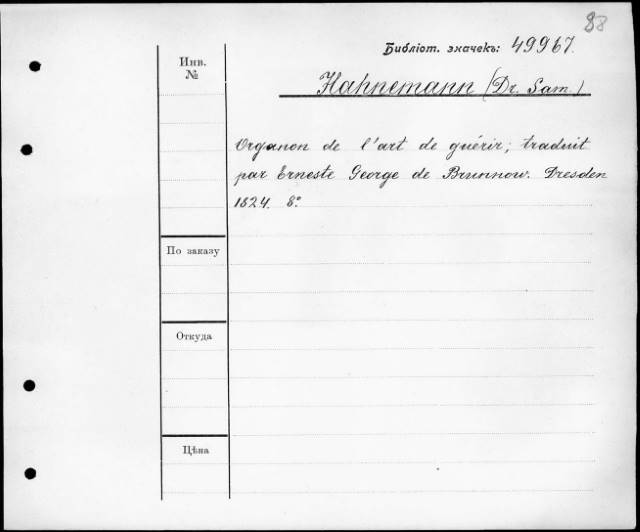 88
Библіот. значекъ: 49967.
Hahnemann (Dr. Sam.)
Инв.
№
Organon de l'art de guérir; traduit
par Erneste George de Brunnow. Dresden
1824. 8°
По заказу
Откуда
Цѣна